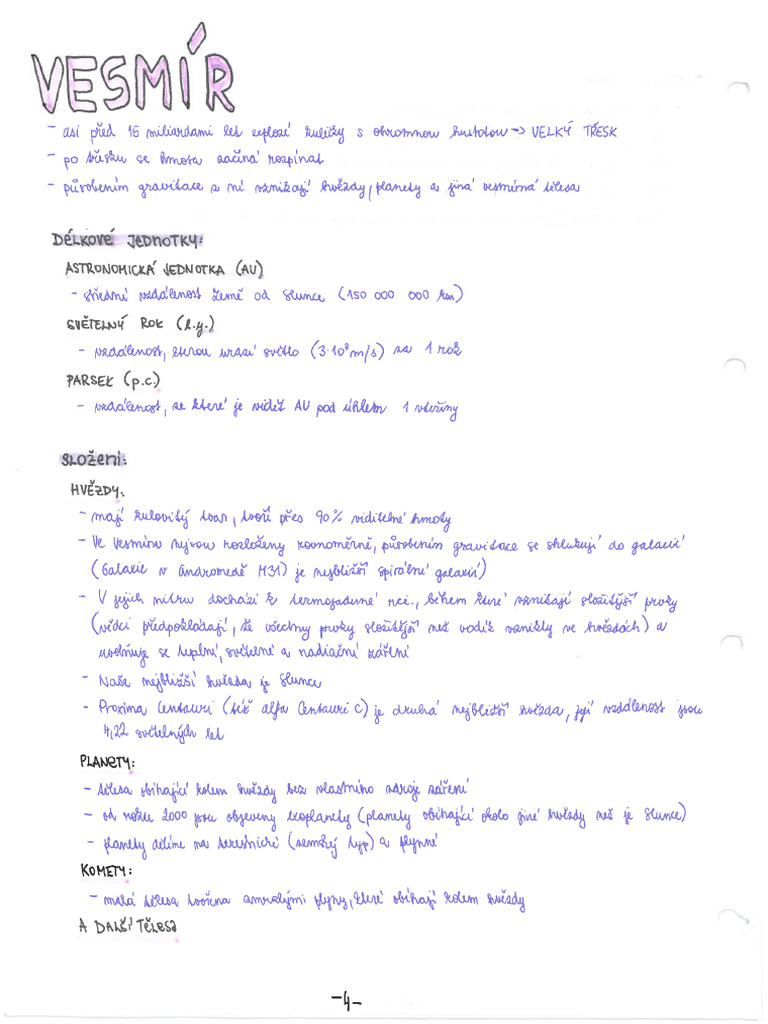 VESMÍR
- asi před 15 miliardami let explozí kuličky s ohromnou hustotou -> VELKÝ TŘESK
- po třesku se hmota začíná rozpínat
- působením gravitace z ní vznikají hvězdy, planety a jiná vesmírná tělesa
DÉLKOVÉ JEDNOTKY:
ASTRONOMICKÁ JEDNOTKA (AU)
- střední vzdálenost Země od Slunce (150 000 000 km)
SVĚTELNÝ ROK (l.y.)
- vzdálenost, kterou urazí světlo (3·10⁸ m/s) za 1 rok
PARSEK (p.c.)
- vzdálenost, ze které je vidět AU pod úhlem 1 vteřiny
SLOŽENÍ:
HVĚZDY:
- mají kulovitý tvar, tvoří přes 90% viditelné hmoty
- Ve vesmíru nejsou rozloženy rovnoměrně, působením gravitace se shlukují do galaxií
(Galaxie v Andromedě M31) je nejbližší spirálné galaxií)
- V jejich nitru dochází k termojaderné rci., během které vznikají složitější prvky
(vědci předpokládají, že všechny prvky složitější než vodík vznikly ve hvězdách) a
uvolňuje se teplní, světelné a radiační záření
- Naše nejbližší hvězda je Slunce
- Proxima Centauri (též alfa Centauri C) je druhá nejbližší hvězda, její vzdálenost jsou
4,22 světelných let
PLANETY:
- tělesa obíhající kolem hvězdy bez vlastního zdroje záření
- od roku 2000 jsou objeveny exoplanety (planety obíhající okolo jiné hvězdy než je Slunce)
- planety dělíme na terestrické (zemský typ) a plynné
KOMETY:
- malá tělesa tvořena zmrzlými plyny, které obíhají kolem hvězdy
A DALŠÍ TĚLESA
-4-